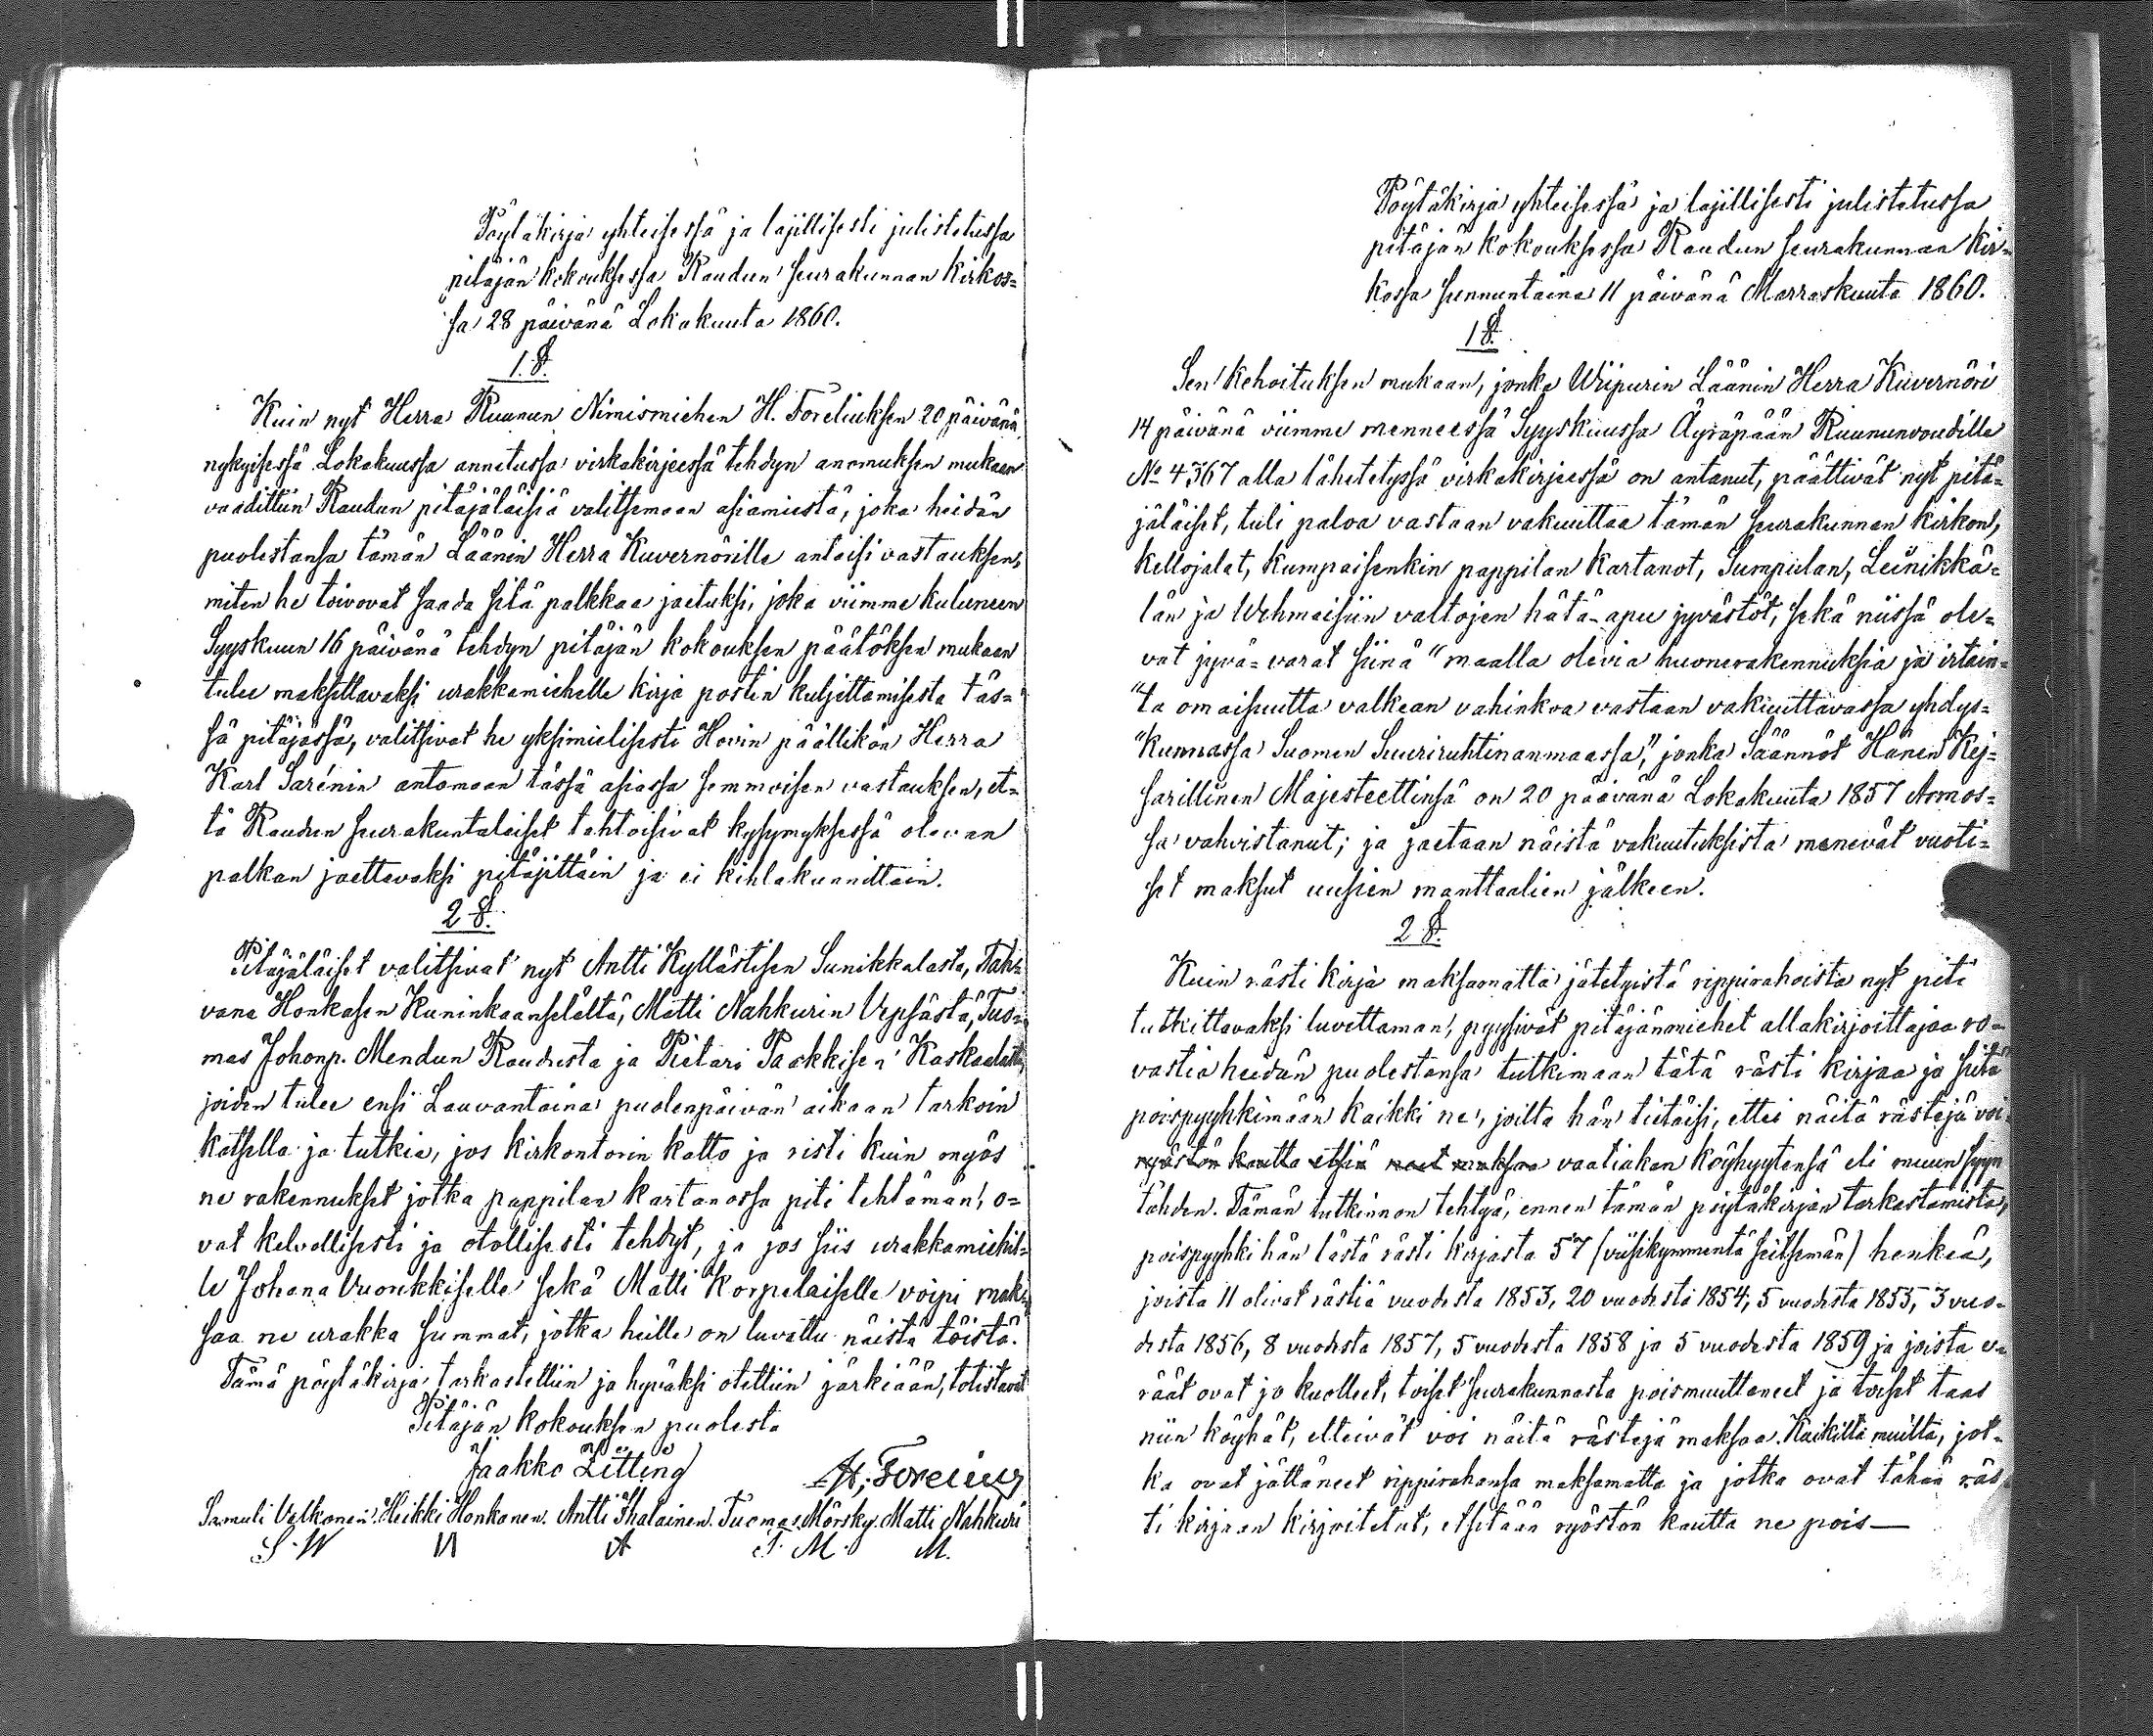 Pöytäkirja yhteisessä ja lajillisesti julistetussa
pitäjän kokouksessa Raudun seurakunnan kirkos=
sa 28 päivänä Lokakuuta 1860.
1.§.
Kuin nyt Herra Ruunun Nimismiehen H. Foreliuksen 20 päivänä
nykyisessä Lokakuussa annetussa virkakirjeessä tehdyn anomuksen mukaan
vaadittiin Raudun pitäjäläisiä valitsemaan asiamiestä, joka heidän
puolestansa tämän Läänin Herra Kuvernörille antaisi vastauksen,
miten he toivovat saada sitä palkkaa jaetuksi, joka viimme kuluneen
Syyskuun 16 päivänä tehdyn pitäjän kokouksen päätöksen mukaan
tulee maksettavaksi urakkamiehelle kirja postin kuljettamisesta täs=
sä pitäjässä, valitsivat he yksimielisesti Hovin päällikön Herra
Karl Sarénin antamaan tässä asiassa semmoisen vastauksen, et=
tä Raudun seurakuntalaiset tahtoisivat kysymyksessä olevan
palkan jaettavaksi pitäjittäin ja ei kihlakunnittain.
2 §.
Pitäjäläiset valitsivat nyt Antti Kyllästisen Sunikkalasta, Tah=
vana Honkasen Kuninkaanselältä, Matti Nahkurin Vepsästä, Tuo=
mas Johanp. Mendun Raudusta ja Pietari Paakkisen Kaskaalasta
joiden tulee ensi Lauvantaina puolenpäivän aikaan tarkoin
katsella ja tutkia, jos kirkontorin katto ja risti kuin myös
ne rakennukset jotka pappilan kartanossa piti tehtämän, o=
vat kelvollisesti ja otollisesti tehdyt, ja jos siis urakkamiehil=
le Johana Vuorikkiselle sekä Matti Korpelaiselle voipi mak=
saa ne urakka summat, jotka heille on luvattu näistä töistä.
Tämä pöytäkirja tarkastettiin ja hyväksi otettiin järkiään, totistavat
Pitäjän kokouksen puolesta
Jaakko Litting H. Forelius
Samuli Valkonen. Heikki Honkanen. Antti Ihalainen. Tuomas Mörsky. Matti Nahkuri
S. W H A T. M. M.
Pöytäkirja yhteisessä ja lajillisesti julistetussa
pitäjän kokouksessa Raudun seurakunnan kir=
kossa sunnuntaina 11 päivänä Marraskuuta 1860.
1 §.
Sen kehoituksen mukaan, jonka Wiipurin Läänin Herra Kuvernöri
14 päivänä viimme menneessä Syyskuussa Äyräpään Ruununvoudille
No 4367 alla lähetetyssä virkakirjeessä on antanut, päättivät nyt pitä=
jäläiset, tuli paloa vastaan vakuuttaa tämän seurakunnan kirkon,
kellojalat, kumpaisenkin pappilan kartanot, Sumpulan, Leinikkä=
län ja Wehmaisiin valtojen hätä-apu jyvästöt, sekä niissä ole=
vat jyvä=varat siinä "maalla olevia huonerakennuksia ja irtain=
"ta omaisuutta valkean vahinkoa vastaan vakuuttavassa yhdys=
"kunnassa Suomen Suuriruhtinanmaassa," jonka Säännöt Hänen Kej=
sarillinen Majesteettinsä on 20 päivänä Lokakuuta 1857 Armos=
sa vahvistanut; ja jaetaan näistä vakuutuksista menevät vuoti=
set maksut uusien manttaalien jälkeen.
2 §.
Kuin rästi kirja maksamatta jätetyistä rippirahoista nyt piti
tutkittavaksi luvettaman, pyysivät pitäjänmiehet allakirjoittajaa ro=
vastia heidän puolestansa tutkimaan tätä rästi kirjaa ja siitä
poispyyhkimään kaikki ne, joilta hän tietäisi, ettei näitä rästejä voi
ryöstön kautta etsiä vaatiakan köyhyytensä eli muun syyn
tähden. Tämän tutkinnon tehtyä, ennen tämän pöytäkirjan tarkastamista,
poispyyhki hän tästä rästi kirjasta 57 (viisikymmentä seitsemän) henkeä,
joista 11 olivat rästiä vuodesta 1853, 20 vuodesta 1854, 5 vuodesta 1855, 3 vuo=
desta 1856, 8 vuodesta 1857, 5 vuodesta 1858 ja 5 vuodesta 1859 ja joista e=
räät ovat jo kuolleet, toiset seurakunnasta poismuuttaneet ja toiset taas
niin köyhät, etteivät voi näitä rästejä maksaa. Kaikilta muilta, jot=
ka ovat jättäneet rippirahansa maksamatta ja jotka ovat tähän räs=
ti kirjaan kirjoitetut, etsitään ryöstön kautta ne pois—